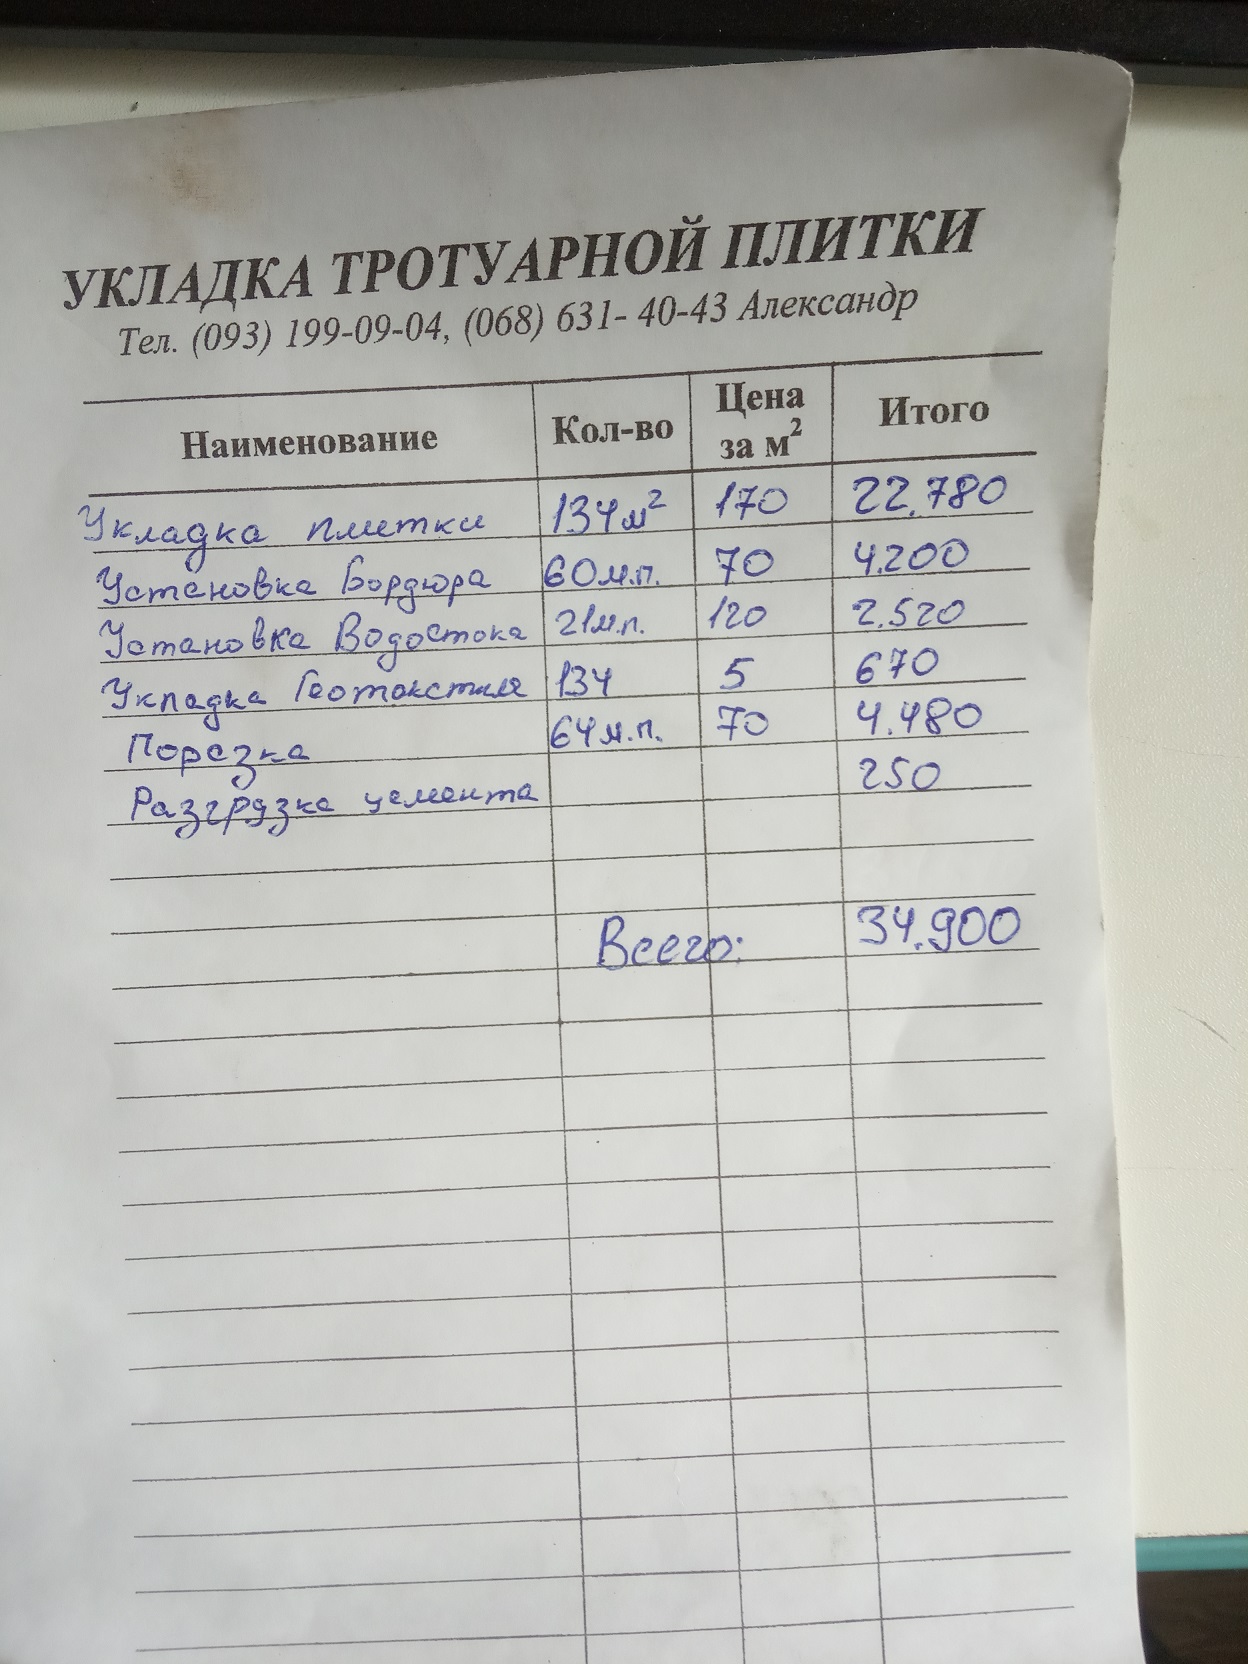 УКЛАДКА ТРОТУАРНОЙ ПЛИТКИ
Тел. (093) 199-09-04, (068) 631- 40-43 Александр
Наименование Кол-во Цена за м² Итого
Укладка плитки 134м² 170 22.780
Установка Бордюра 60м.п. 70 4.200
Установка Водостока 21м.п. 120 2.520
Укладка Геотекстиля 134 5 670
Порезка 64м.п. 70 4.480
Разгрузка цемента 250
Всего: 34.900